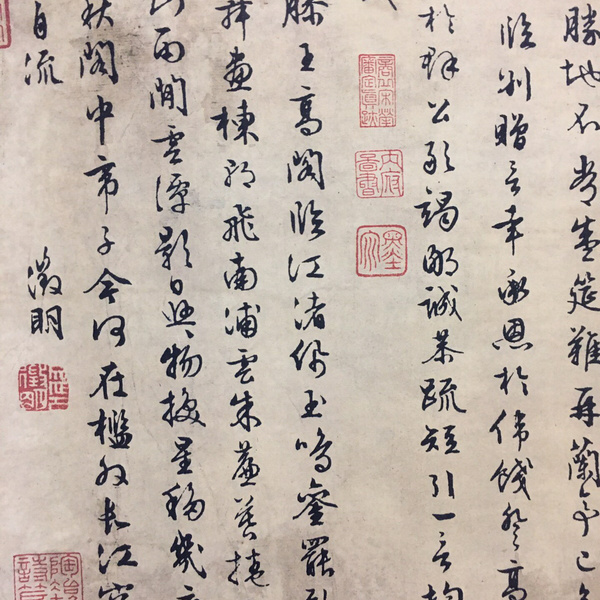 勝地不常盛筵難再蘭亭已
臨別贈言幸承恩於偉餞登高
於群公敢竭鄙誠恭疏短引一言均
商丘宋犖審定真跡
內府圖書
滕王高閣臨江渚佩玉鳴鑾罷歌
舞畫棟朝飛南浦雲朱簾暮捲
雨閒雲潭影日悠々物換星移幾度
秋閣中帝子今何在檻外長江空
自流
徵明